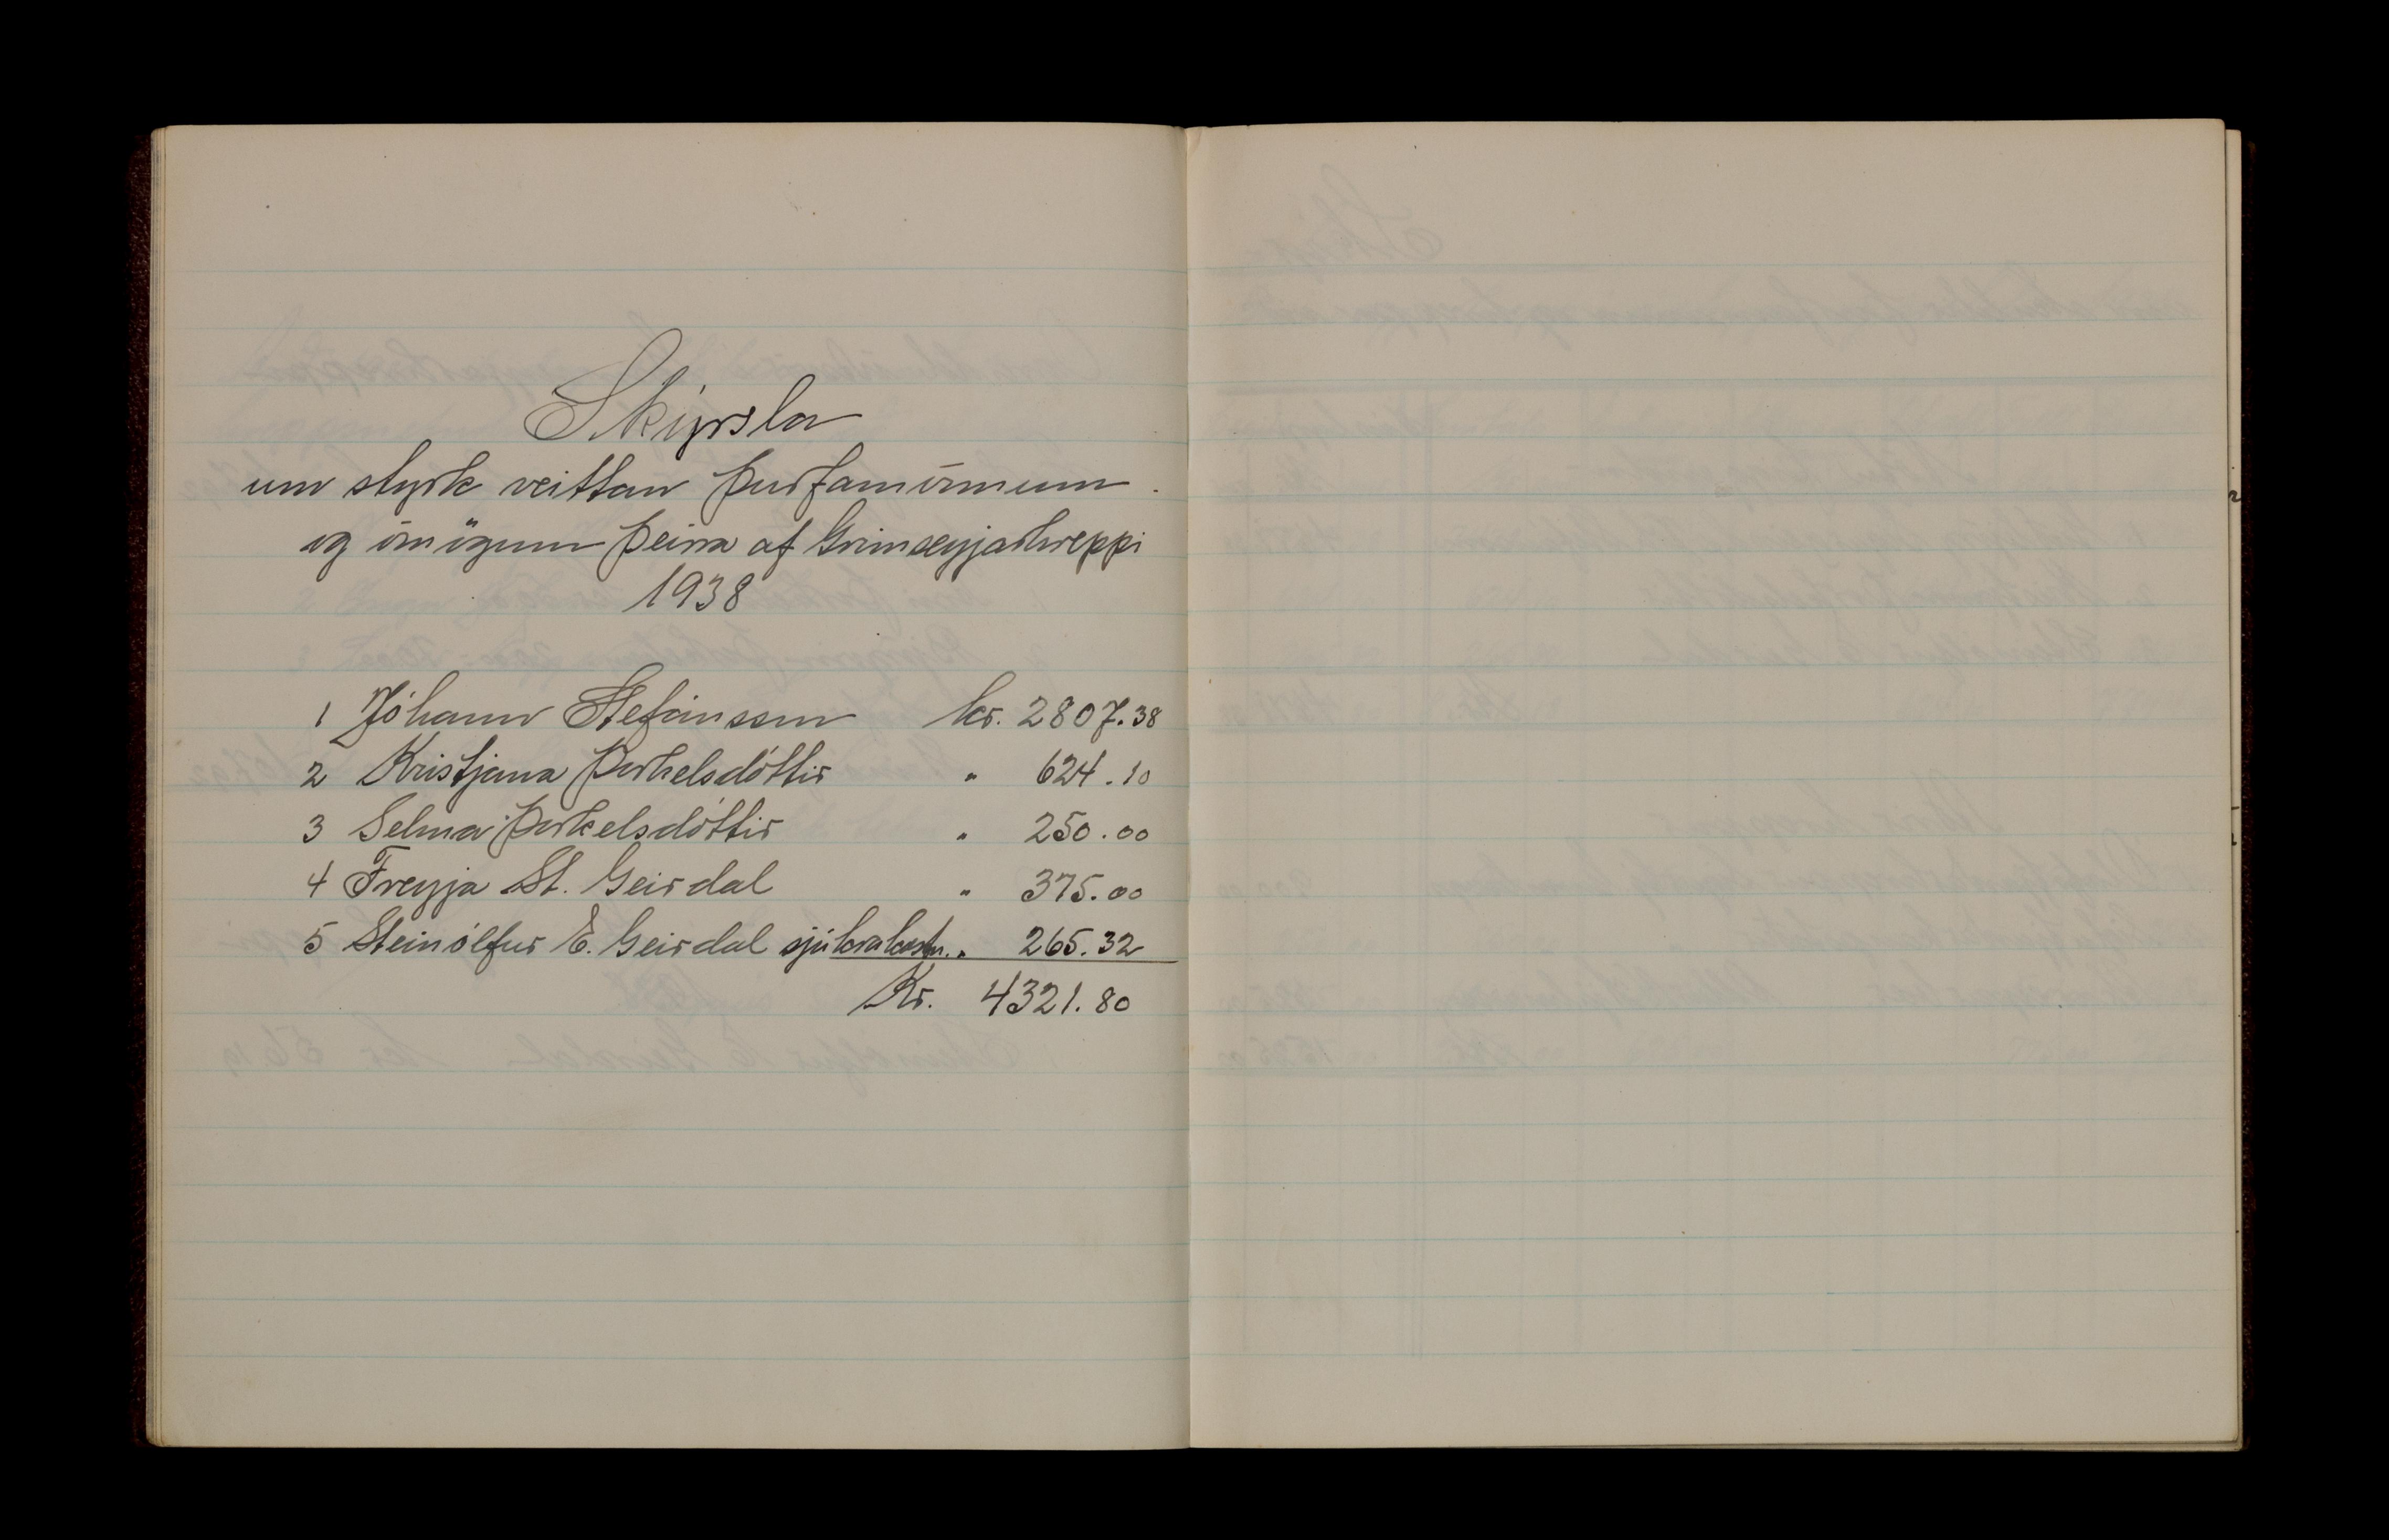 Skýrsla
um styrk veittan þurfamönnum
og ómögum þeirra af Grímseyjarhreppi
1938
1 Jóhann Stefánsson kr. 2807.38
2 Kristjana Þorkelsdóttir " 624.10
3 Selma Þorkelsdóttir " 250.00
4 Freyja St. Geirdal " 375.00
5 Steinólfur E. Geirdal sjúkrakostn. " 265.32
Kr. 4321.80